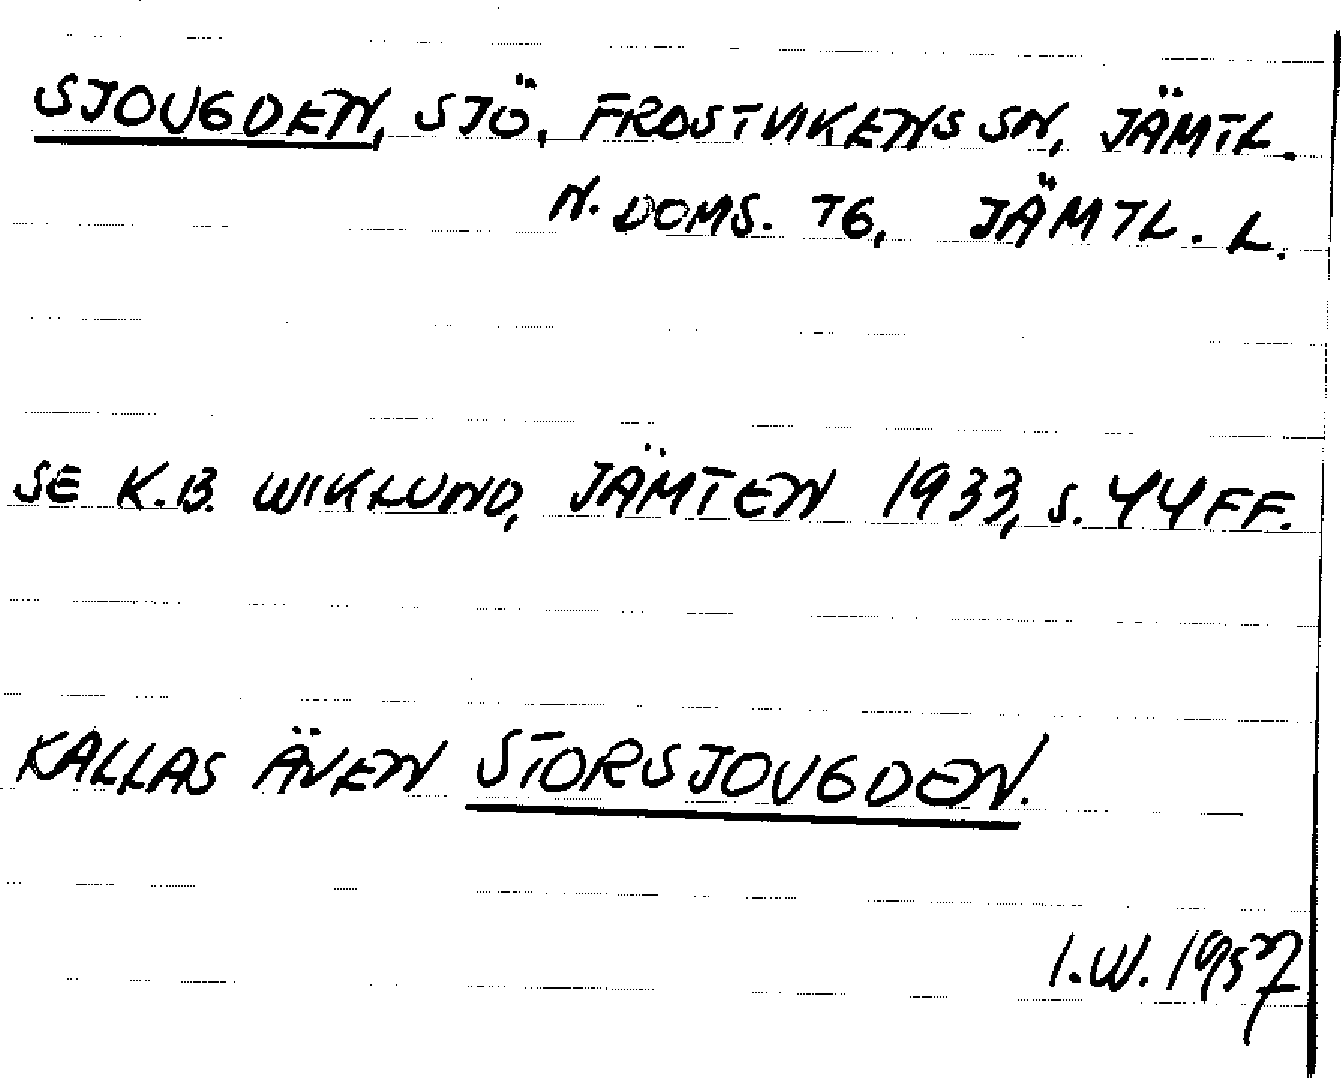 SJOUGDEN, SJÖ, FROSTVIKENS SN, JÄMTL.
N. DOMS. TG, JÄMTL. L.
SE K.B. WIKLUND, JÄMTEN 1933, S. 44 FF.
KALLAS ÄVEN STORSJOUGDEN.
I.W. 1957